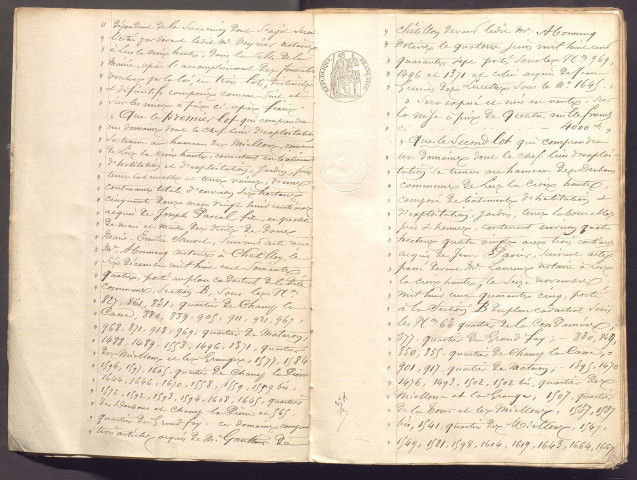 dépendant de la succession dont s'agit seront
licités par devant ledit Me notaire
à Luz la croix haute, dans la salle de la
Mairie, après l'accomplissement des formalités
voulues par la loi, en trois lots, distincts
et définitifs composés comme suit et
sur les mises à prix ci-après fixées
Que le premier lot qui comprendra
un domaine dont le chef lieu d'exploitation
se trouve au hameau des Miellons, commune
de Luz la croix haute, consistant en bâtiments
d'habitation et d'exploitation, jardin, prés,
terres labourables et terres vaines, d'une
contenance total d'environ dix hectares
cinquante douze ares vingt huit centiares
acquis de Joseph Pascal fils en qualité
de mari et maître des droits de dame
Marie Emilie suivant acte reçu
Me notaire à Châtillon, le
six décembre mil huit cent soixante
quatre, porté au plan cadastral de la dite
commune, section B, sous les Nos
827, 861, 821, quartier de Chamy la
Cane, 880, 889, 905, 911, 921, 967,
968, 971, 918, 969, quartier de Materoy,
1488, 1489, 1553, 1496, 1871, quartier
des Miellons et les Granges, 1577, 1584
1596, 1597, 1605, quartier de Chamy la Pierre
1644, 1646, 1670, 1558, 1559, 1509 bis,
1572, 1592, 1593, 1594, 1608, 1665, quartier
des Durbons et Chamy la Pierre et 565
quartier du Grand fay. ce domaine comprend
trois articles acquis de Mr
RÉPUBLIQUE FRANÇAISE
Châtillon devant ledit Me
notaire le quatorze juin mil huit cent
quarante sept porté sous les Nos 969,
1496 et 1371 et celui acquis de
sous le No 1645.
Sera exposé et mis en vente sur
la mise à prix de quatre mille francs
ci 4000 f
Que le second lot qui comprendra
un domaine dont le chef lieu d'exploi-
tation se trouve au hameau des Durbons
commune de Luz la Croix haute,
composé de bâtiments d'habitation et
d'exploitation, jardin, terres labourables,
prés et hermes, contenant environ quatre
hectares quatre vingts ares trois centiares
acquis de Jean suivant acte
passé devant Me notaire à Luz
la croix haute, le seize novembre
mil huit cent quarante cinq, porté
à la section B du plan cadastral sous
les Nos 63 quartier de la Condamine,
577 quartier de Grand fay; 830, 848,
850, 855, quartier de Chamy la Cane,
901, 917 quartier de Materoy; 1395, 1470
1476, 1493, 1502, 1502 bis, quartier des
Miellons et la Grange, 1507, quartier
de la Tour et les Miellons; 1537, 1537
bis, 1541, quartier des Miellons, 1547,
1549, 1581, 1598, 1604, 1619, 1643, 1664, 1667